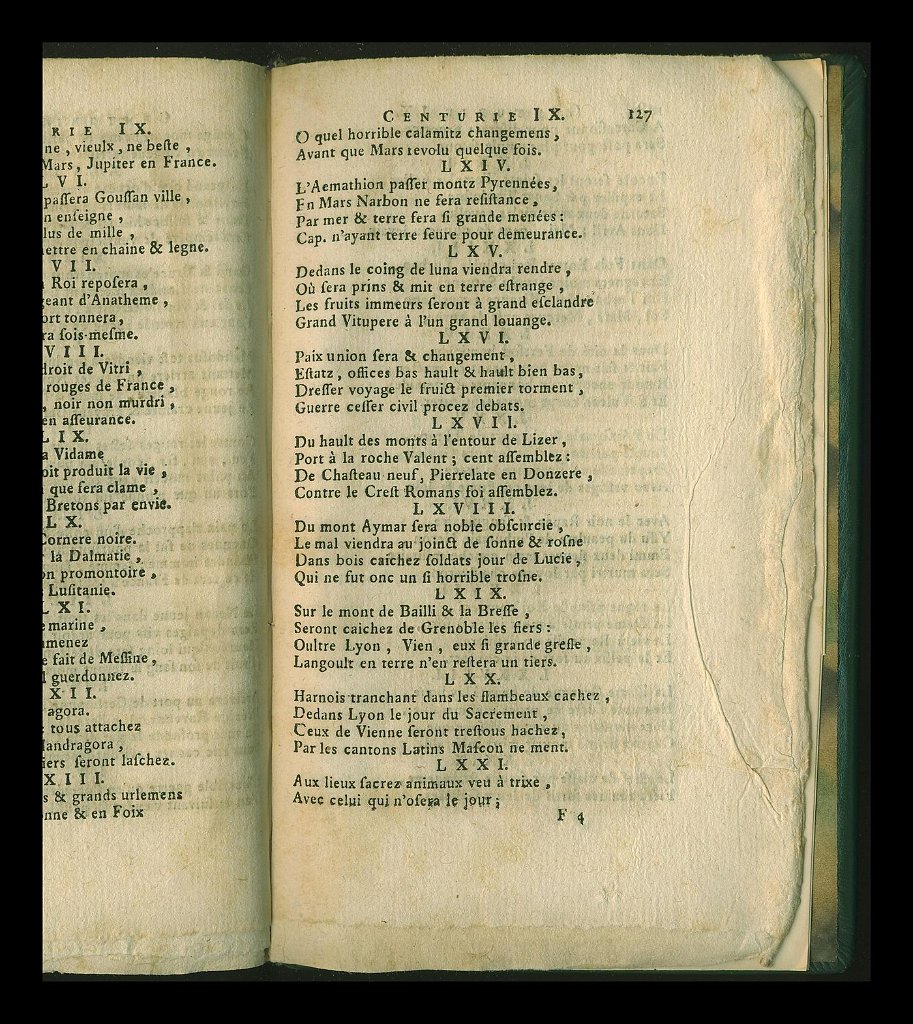 RIE IX.
ne, vieulx, ne beſte,
Mars, Jupiter en France.
VI.
paſſera Gouſſan ville,
n enſeigne,
lus de mille,
ettre en chaine & legne.
VII.
Roi repoſera,
geant d'Anatheme,
ort tonnera,
ra ſois-meſme.
VIII.
droit de Vitri,
rouges de France,
, noir non murdri,
en aſſeurance.
LIX.
a Vidame
oit produit la vie,
que ſera clame,
Bretons par envie.
LX.
Cornere noire.
la Dalmatie,
on promontoire,
Luſitanie.
LXI.
marine,
menez
e fait de Meſſine,
l guerdonnez.
XII.
agora.
tous attachez
landragora,
iers ſeront laſchez.
XIII.
s & grands urlemens
nne & en Foix
CENTURIE IX. 127
O quel horrible calamitz changemens,
Avant que Mars revolu quelque fois.
LXIV.
L'Aemathion paſſer montz Pyrennées,
En Mars Narbon ne ſera reſiſtance,
Par mer & terre fera ſi grande menées:
Cap. n'ayant terre ſeure pour demeurance.
LXV.
Dedans le coing de luna viendra rendre,
Où ſera prins & mit en terre eſtrange,
Les fruits immeurs ſeront à grand eſclandre
Grand Vitupere à l'un grand louange.
LXVI.
Paix union ſera & changement,
Eſtatz, offices bas hault & hault bien bas,
Dreſſer voyage le fruict premier torment,
Guerre ceſſer civil procez debats.
LXVII.
Du hault des monts à l'entour de Lizer,
Port à la roche Valent; cent aſſemblez:
De Chaſteau neuf, Pierrelate en Donzere,
Contre le Creſt Romans foi aſſemblez.
LXVIII.
Du mont Aymar ſera noble obſcurcie,
Le mal viendra au joinct de ſonne & roſne
Dans bois caichez ſoldats jour de Lucie,
Qui ne fut onc un ſi horrible troſne.
LXIX.
Sur le mont de Bailli & la Breſſe,
Seront caichez de Grenoble les fiers:
Oultre Lyon, Vien, eux ſi grande greſle,
Langoult en terre n'en reſtera un tiers.
LXX.
Harnois tranchant dans les flambeaux cachez,
Dedans Lyon le jour du Sacrement,
Ceux de Vienne ſeront treſtous hachez,
Par les cantons Latins Maſcon ne ment.
LXXI.
Aux lieux ſacrez animaux veu à trixe,
Avec celui qui n'oſera le jour;
F 4